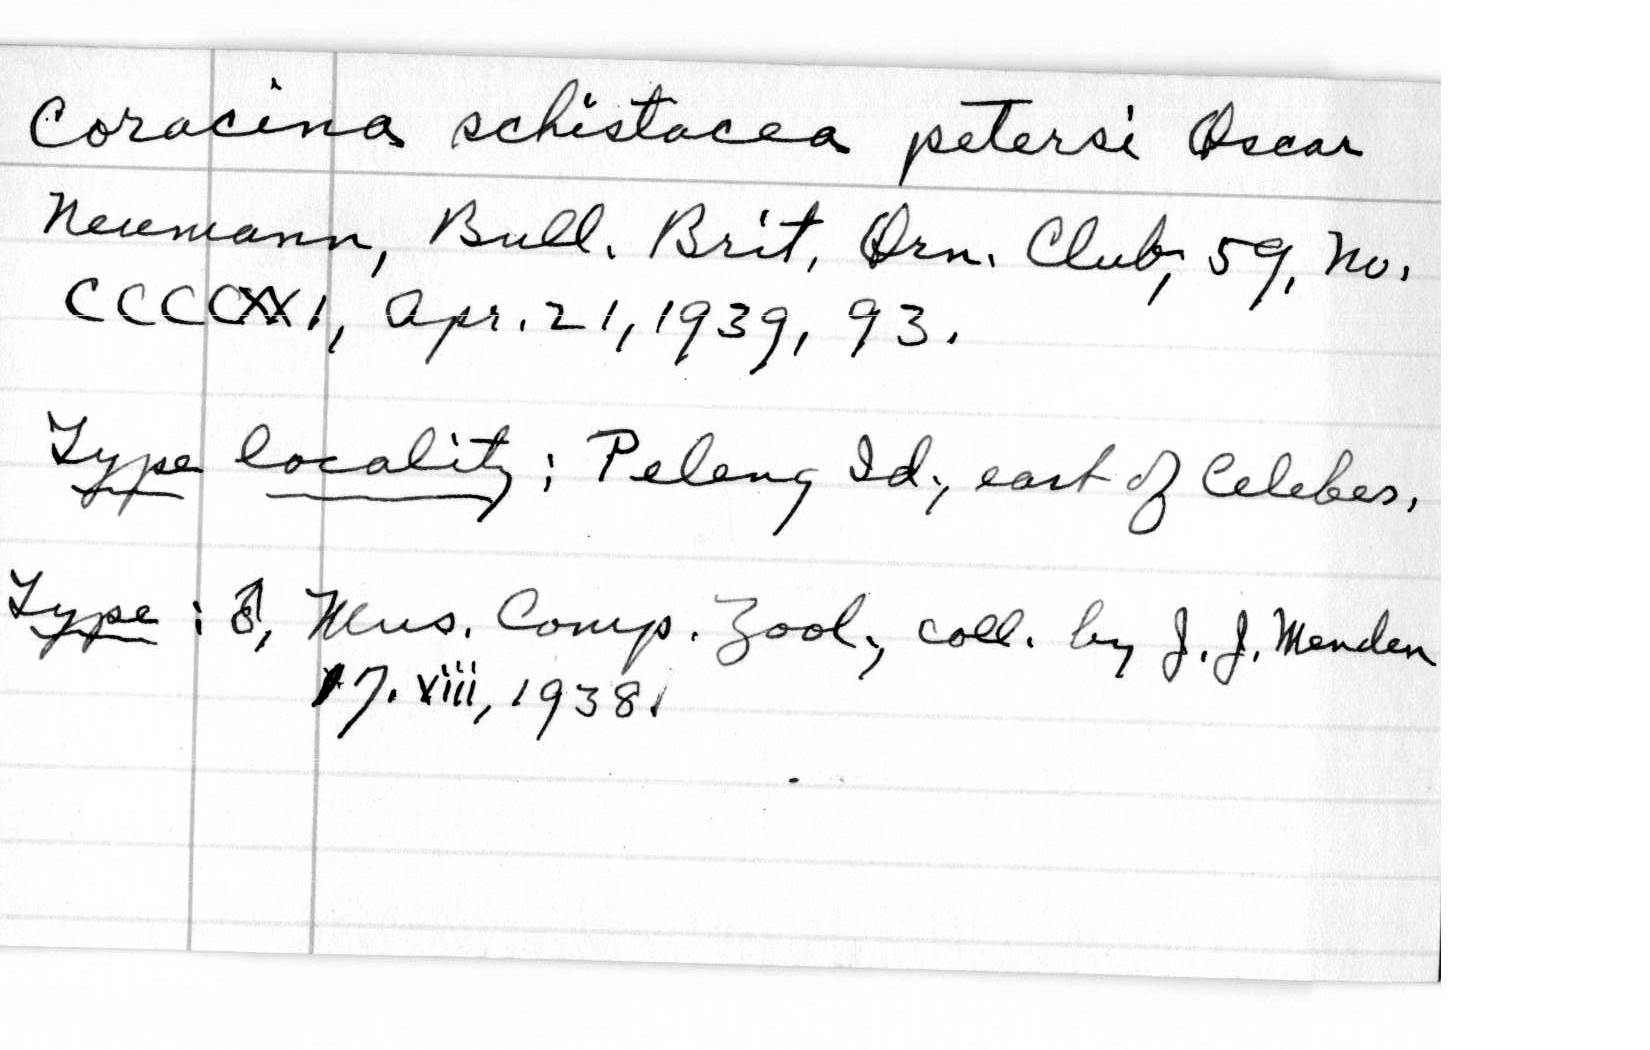 Coracina schistacea petersi Oscar
Neumann, Bull. Brit. Orn. Club, 59, No.
CCCCXXI, Apr. 21, 1939, 93.
Type locality: Peleng Id., east of Celebes.
Type: ♂, Mus. Comp. Zool., coll. by J. J. Menden
17. viii, 1938.